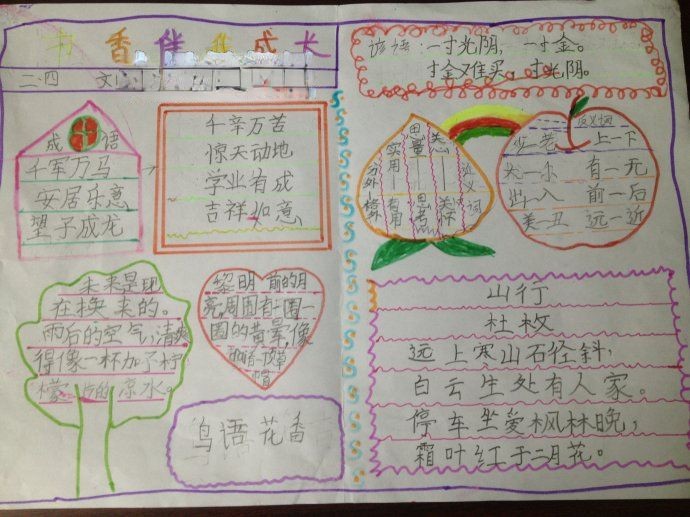 书香伴我成长
二.四 文
成语
千军万马
安居乐意
望子成龙
千辛万苦
惊天动地
学业有成
吉祥如意
未来是现
在换来的。
雨后的空气,清爽
得像一杯加了柠
檬片的凉水。
黎明前的月
亮,周围有一圈一
圈的黄晕,像
草帽
鸟语花香
谚语:一寸光阴,一寸金。
寸金难买,寸光阴。
近义词
关心——关怀
思量——思考
实用——有用
分外——格外
反义词
少—老 上—下
大—小 有—无
出—入 前—后
美—丑 远—近
山行
杜牧
远上寒山石径斜,
白云生处有人家。
停车坐爱枫林晚,
霜叶红于二月花。